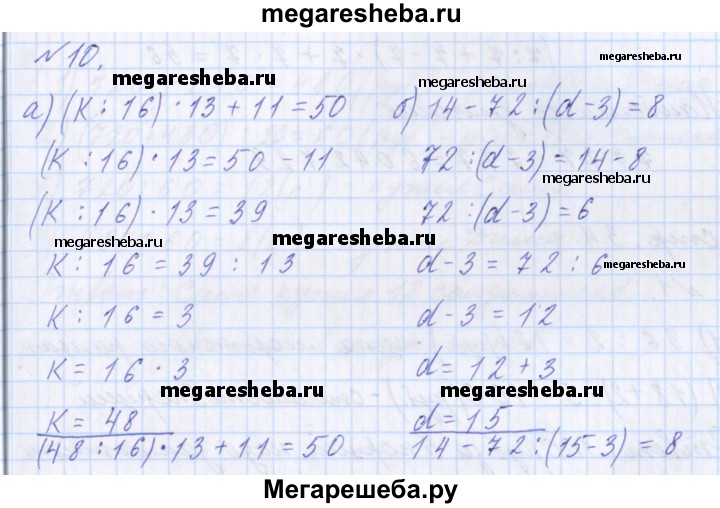 megaresheba.ru
№10.
megaresheba.ru
megaresheba.ru
а) (К : 16) · 13 + 11 = 50
(К : 16) · 13 = 50 - 11
(К : 16) · 13 = 39
megaresheba.ru
К : 16 = 39 : 13
К : 16 = 3
К = 16 · 3
megaresheba.ru
К = 48
(48 : 16) · 13 + 11 = 50
б) 14 - 72 : (d - 3) = 8
72 : (d - 3) = 14 - 8
megaresheba.ru
72 : (d - 3) = 6
megaresheba.ru
d - 3 = 72 : 6
megaresheba.ru
d - 3 = 12
d = 12 + 3
megaresheba.ru
d = 15
14 - 72 : (15 - 3) = 8
Мегарешеба.ру